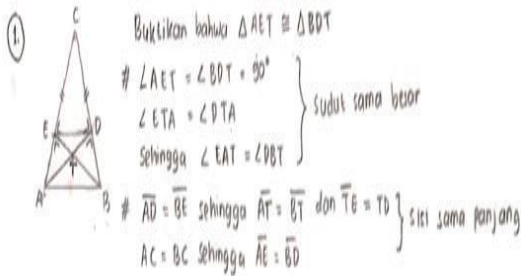 1.
C
E D
T
A B
Buktikan bahwa △AET ≅ △BDT
# ∠AET = ∠BDT = 90°
∠ETA = ∠DTA
Sehingga ∠EAT = ∠DBT
} sudut sama besar
# AD = BE sehingga AT = BT dan TE = TD
AC = BC sehingga AE = BD
} sisi sama panjang